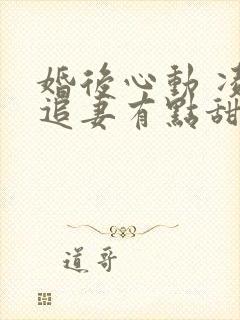 婚後心動 凌
追妻有點甜
道哥